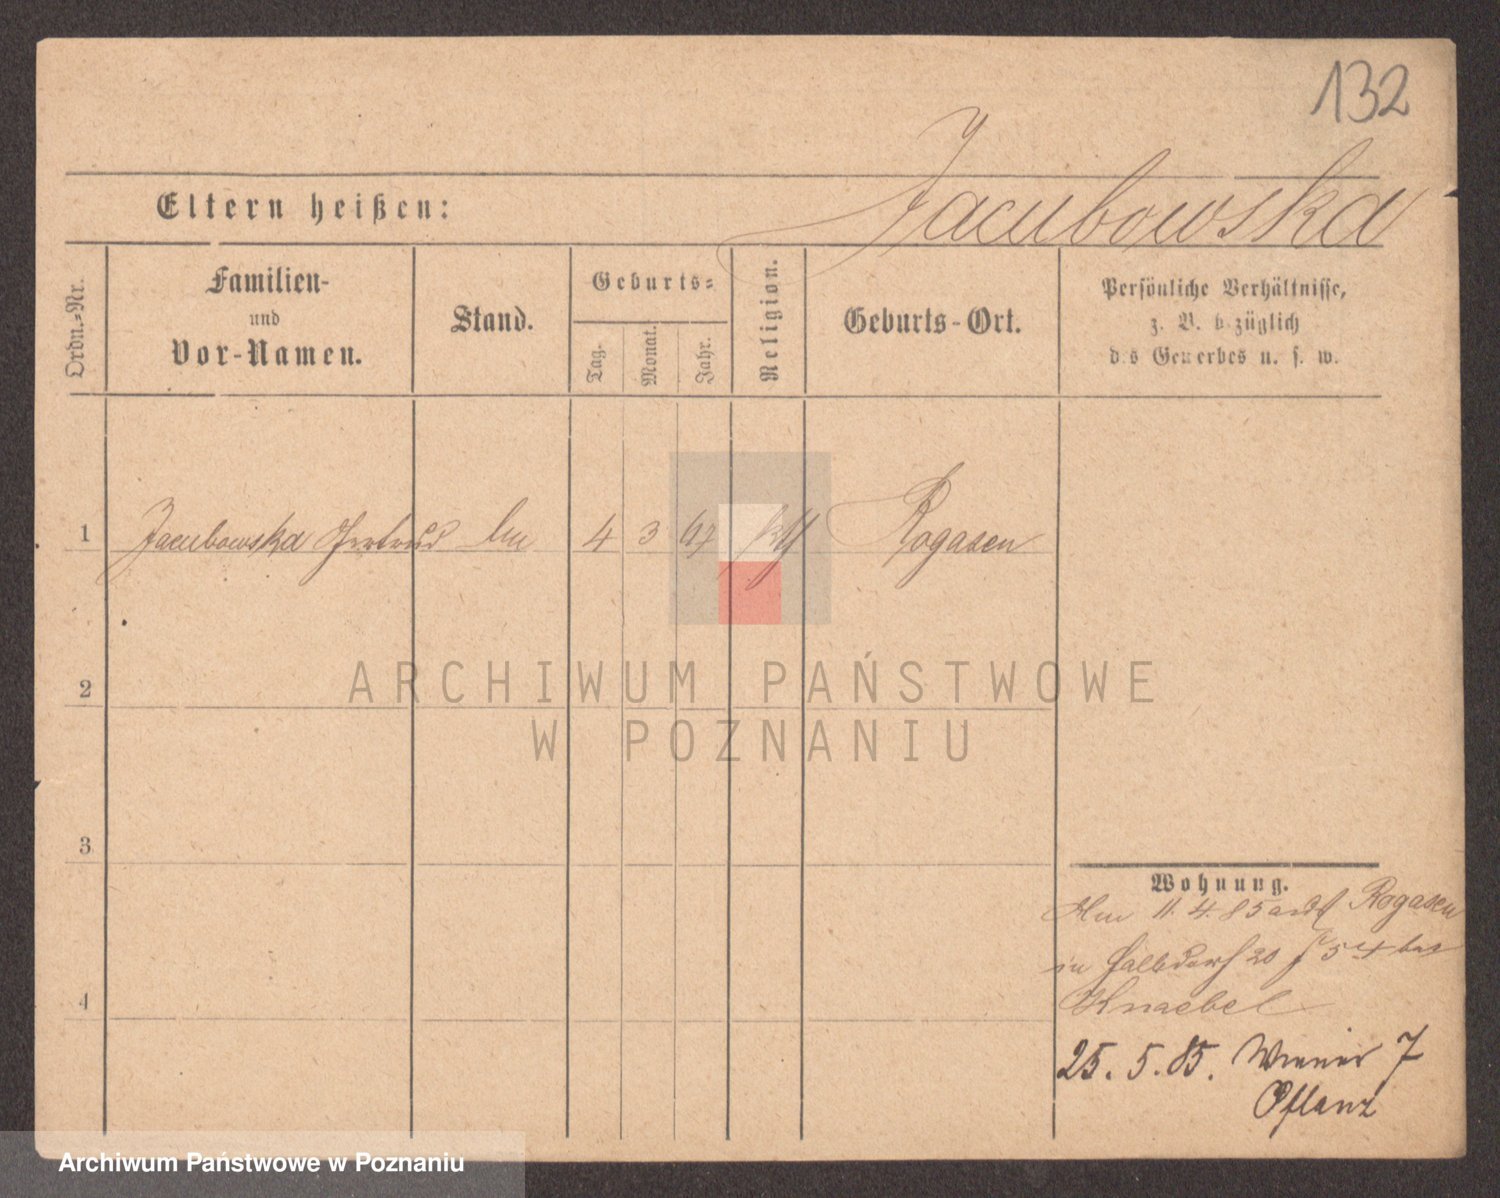 132
Jacubowska
Eltern heißen:
Ordn.-Nr.
Familien-
und
Vor-Namen.
Stand.
Geburts-
Tag.
Monat.
Jahr.
Religion.
Geburts-Ort.
Persönliche Verhältnisse,
z. B. bezüglich
des Gewerbes u. s. w.
1 Jacubowska Gertrud 4 3 67 kth Rogasen
2
3
4
Wohnung.
11. 4. 85 Rogasen
in Halbdorf 20 bei
Knaebel
25. 5. 85. Wiener 7
Pflanz
ARCHIWUM PAŃSTWOWE
W POZNANIU
Archiwum Państwowe w Poznaniu